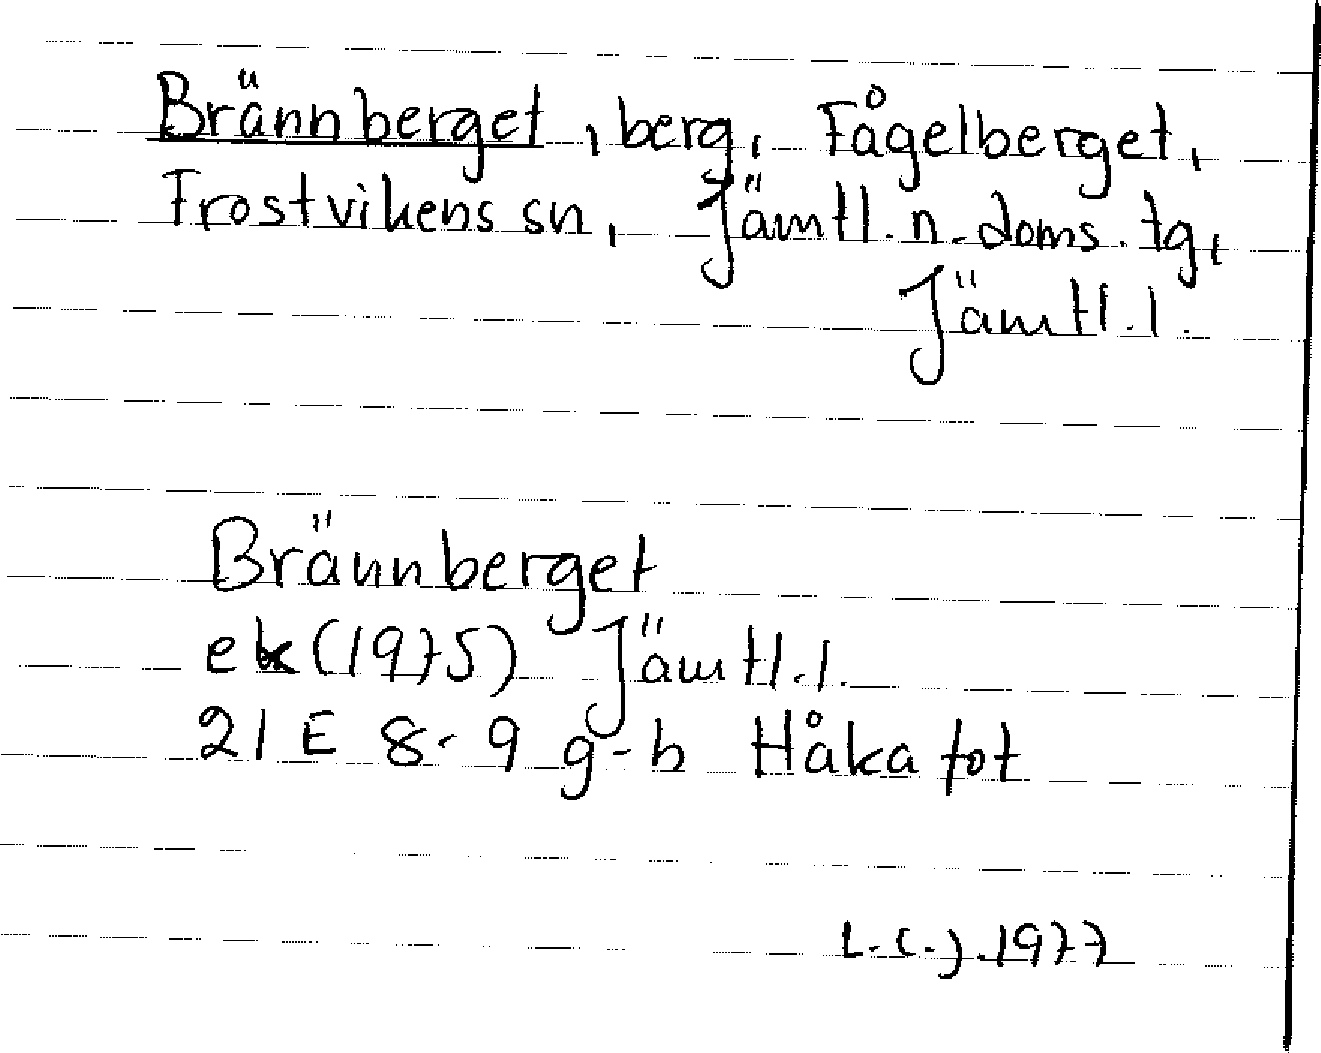 Brännberget, berg, Fågelberget,
Frostvikens sn, Jämtl. n. doms. tg,
Jämtl. l.
Brännberget
ek (1975) Jämtl. l.
21 E 8-9 g-h Håkafot
L.C.J. 1977